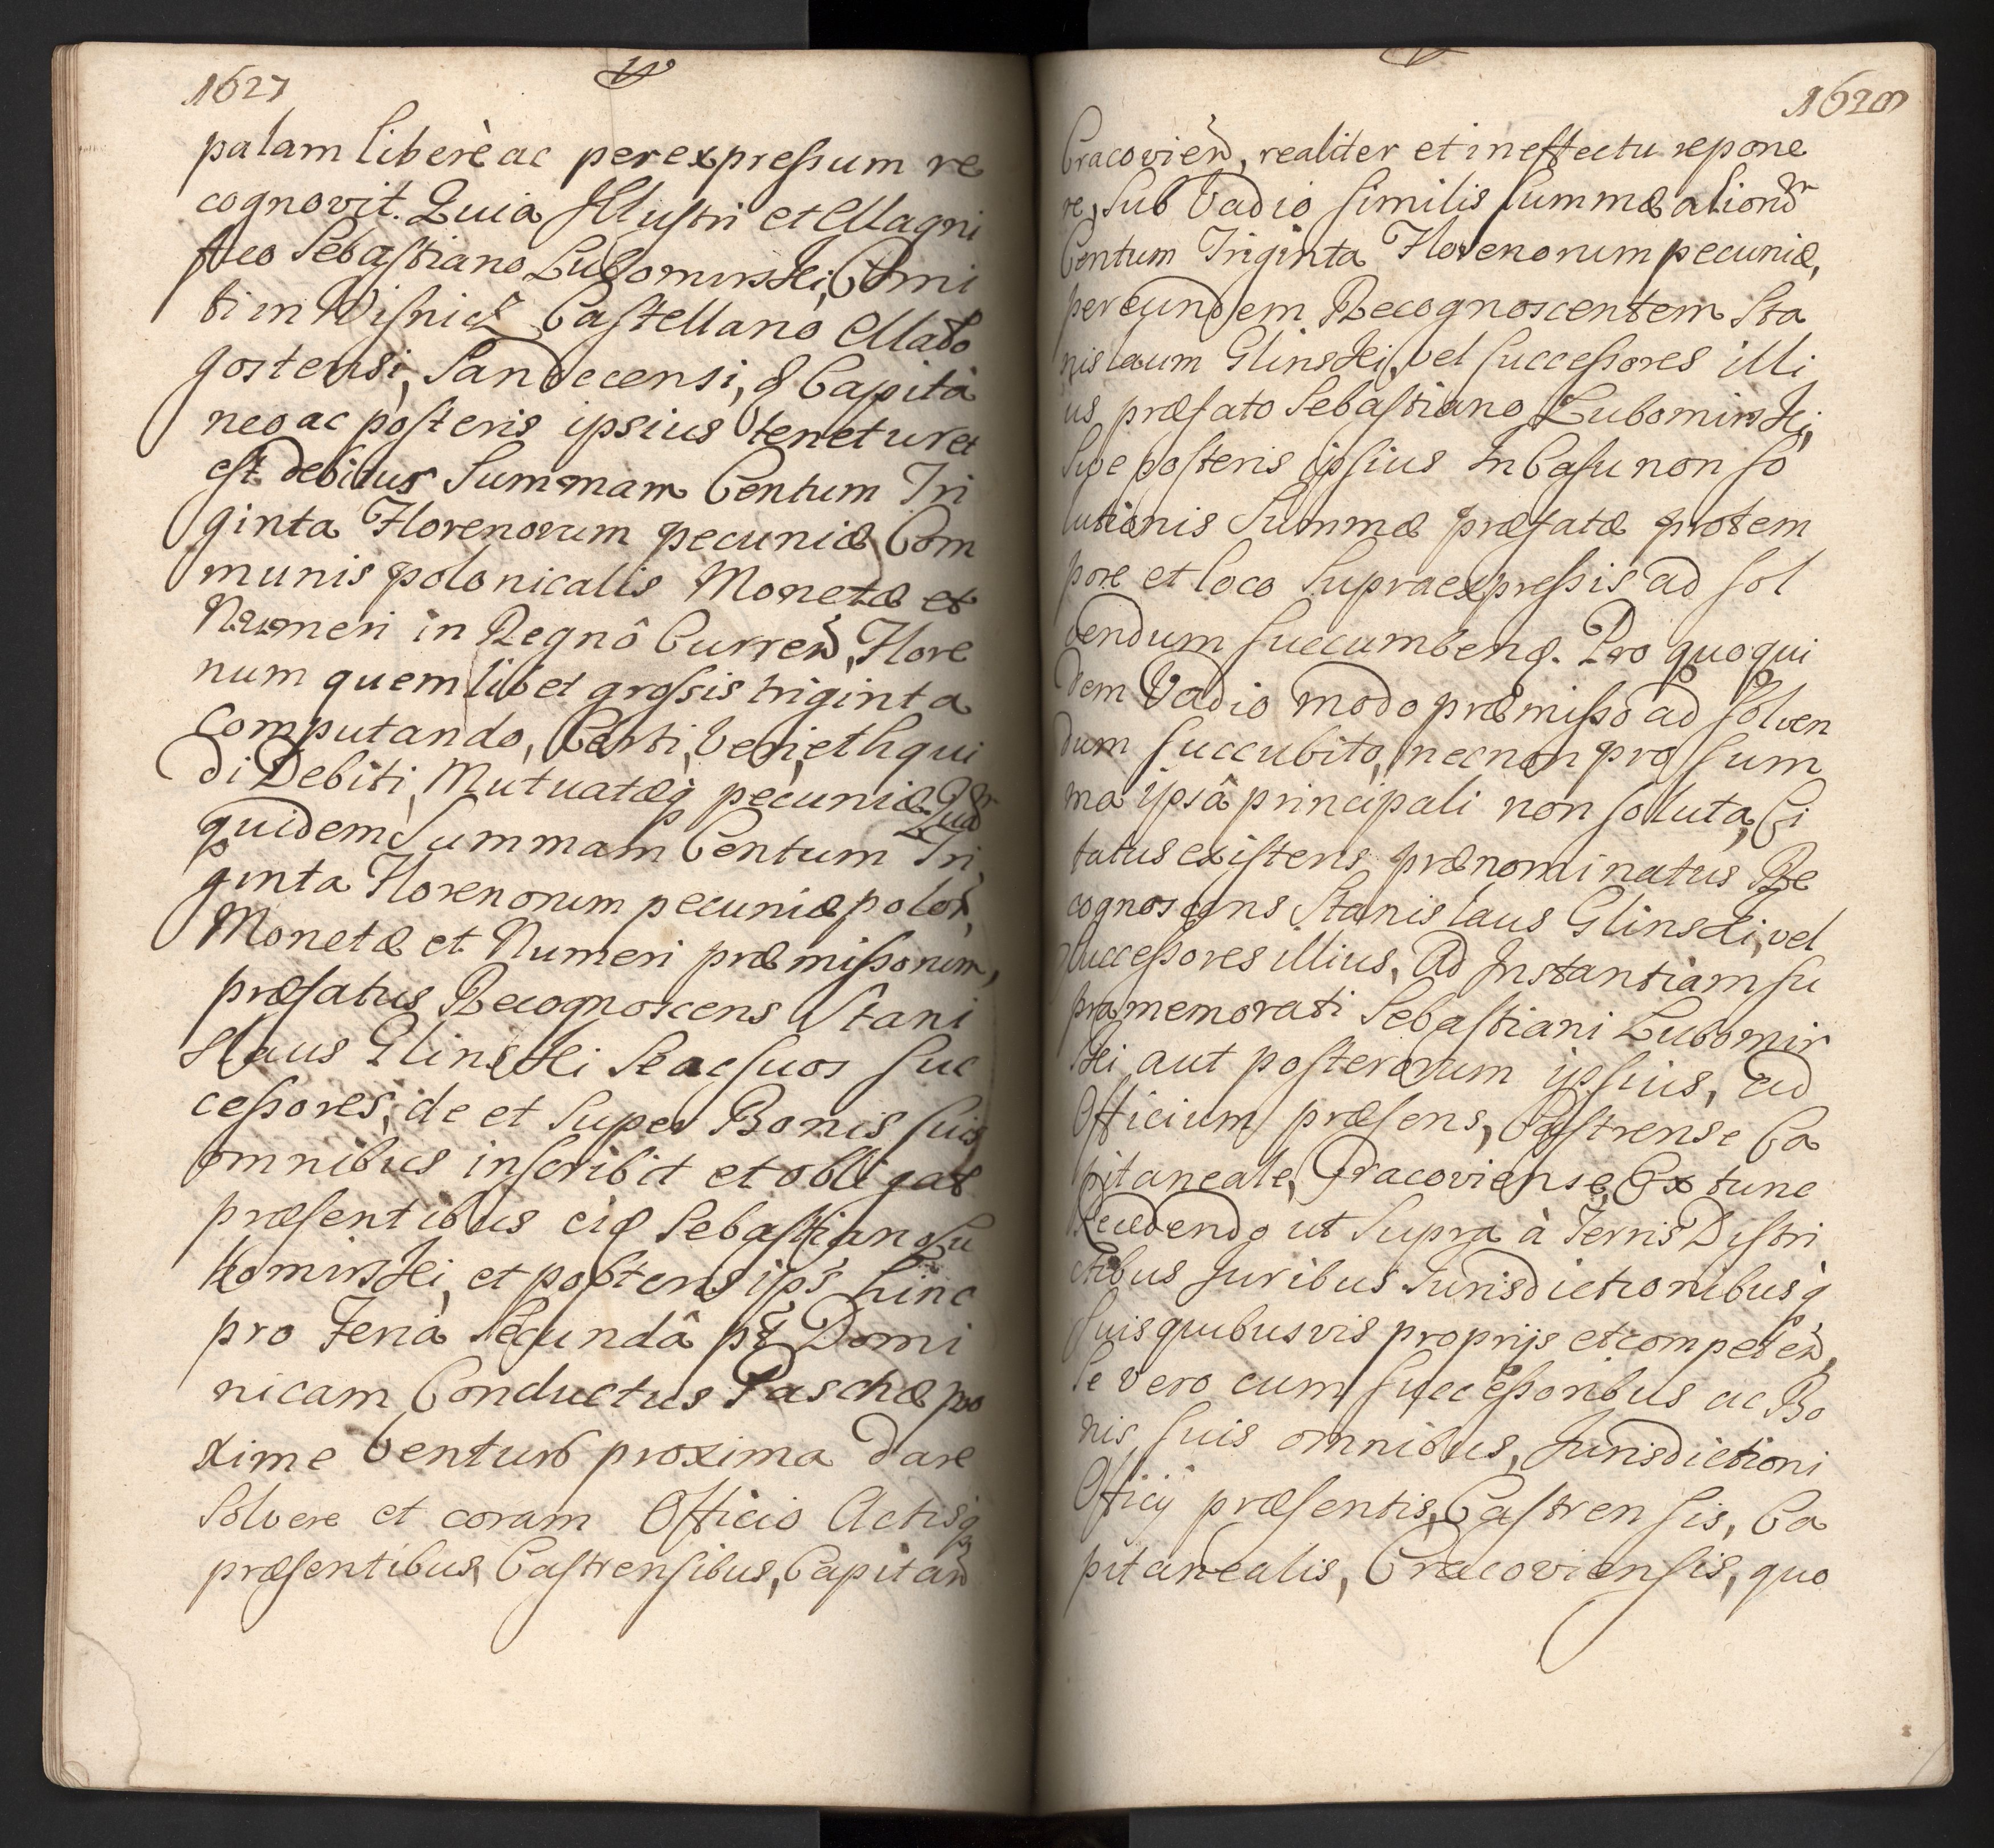 1627
palam liberè ac per expressum re
cognovit. Quia Illustri et Magni
fico Sebastiano Lubomirski, Comi
ti in Wisnicz Castellano Mało
gostensi, Sandecensi, & Capita
neo ac posteris ipsius tenetur et
est debitus Summam Centum Tri
ginta Florenorum pecuniæ Com
munis polonicalis Monetæ et
Numeri in Regnô Curreñ, Flore
num quemlibet grossis triginta
Computando, Certi, Veri, et liqui
di Debiti, Mutuatæq pecuniæ.
quidem Summam Centum Tri
ginta Florenorum pecuniæ poloñ,
Monetæ et Numeri præmissorum,
præfatus Recognoscens Stani
slaus Glinski Se ac suos suc
cessores, de et super Bonis suis
omnibus inscribit et obligat
præsentibus Sebastiano Lu
bomirski, et posteris ips hinc
pro Feriâ Secundâ pt Domi
nicam Conductus Paschæ pro
xime Ventur proxima dare
Solvere et coram Officio Actisq
præsentibus, Castrensibus, Capitañ
1628
Cracovieñ, realiter et in effectu repone
re, sub Vadio similis summæ
Centum Triginta Florenorum pecuniæ,
per eundem Recognoscentem Sta
nislaum Glinski, vel successores illi
us, præfato Sebastiano Lubomirski,
sive posteris ipsius In Casu non so
lutionis Summæ præfatæ pro tem
pore et loco supraexpressis ad sol
vendum succumbend. Pro quo qui
dem Vadio modo præmisso ad solven
dum succubito, necnon pro sum
ma ipsâ principali non soluta, Ci
tatus existens prænominatus Re
cognoscens Stanislaus Glinski, vel
successores illius, Ad Instantiam su
pra memorati Sebastiani Lubomir
ski aut posterorum ipsius, ad
Officium præsens, Castrense Ca
pitaneale, Cracoviense, Ex tunc
Recedendo ut supra à Terris Distri
ctibus Juribus Jurisdictionibusq
suis quibusvis proprijs et competeñ,
Se vero cum successoribus ac Bo
nis suis omnibus, Jurisdictioni
Officij præsentis, Castrensis, Ca
pitanealis, Cracoviensis, quo